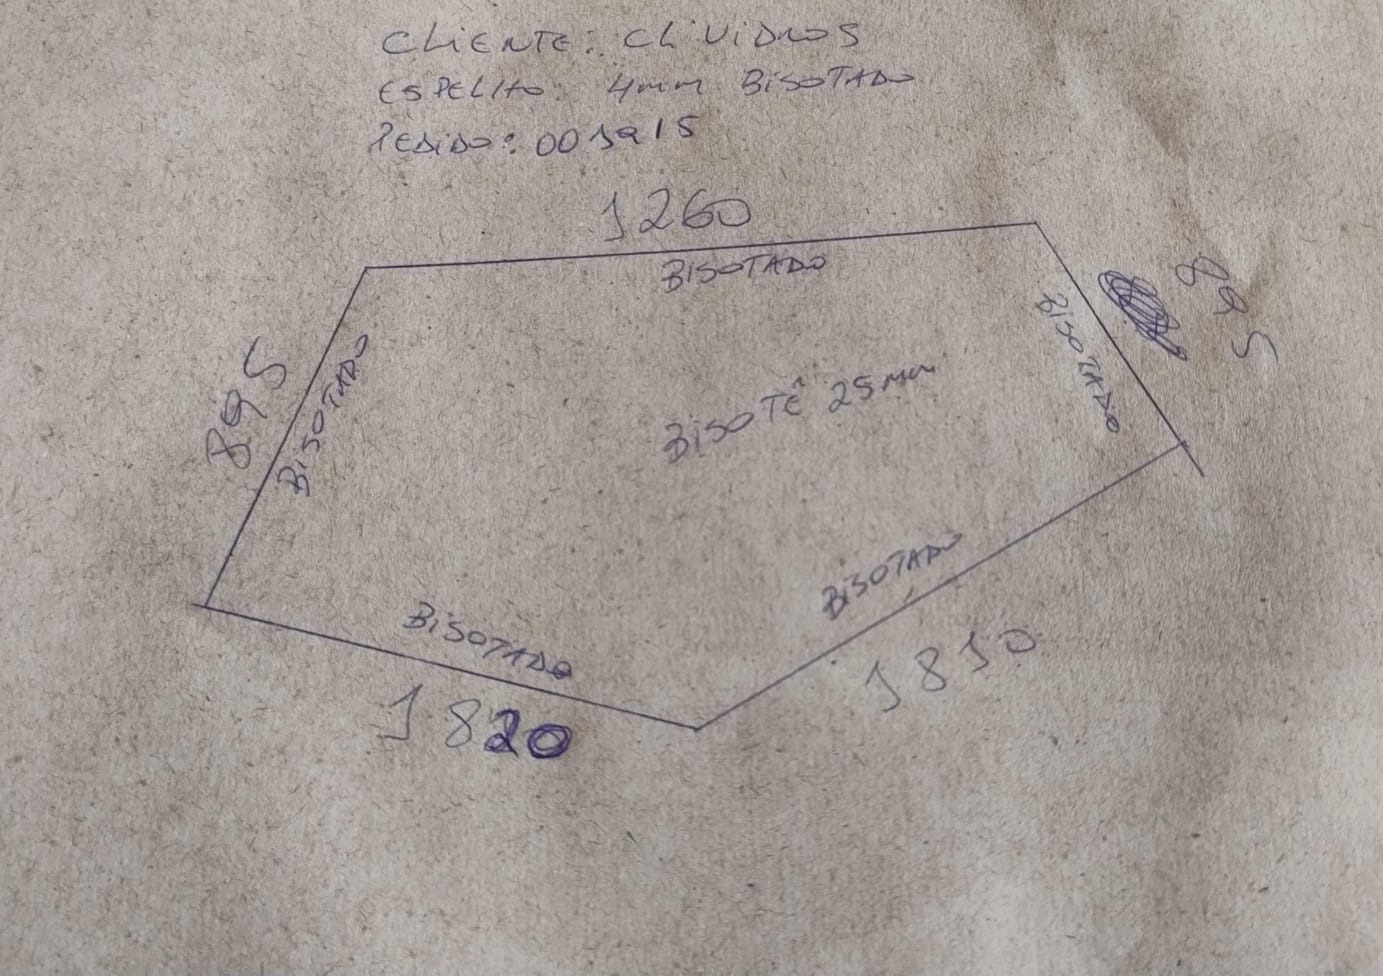 CLIENTE: CLVIDROS
ESPELHO: 4mm BISOTADO
PEDIDO: 001915
1260
BISOTADO
895
BISOTADO
895
BISOTADO
BISOTÊ 25mm
BISOTADO
1820
BISOTADO
1810